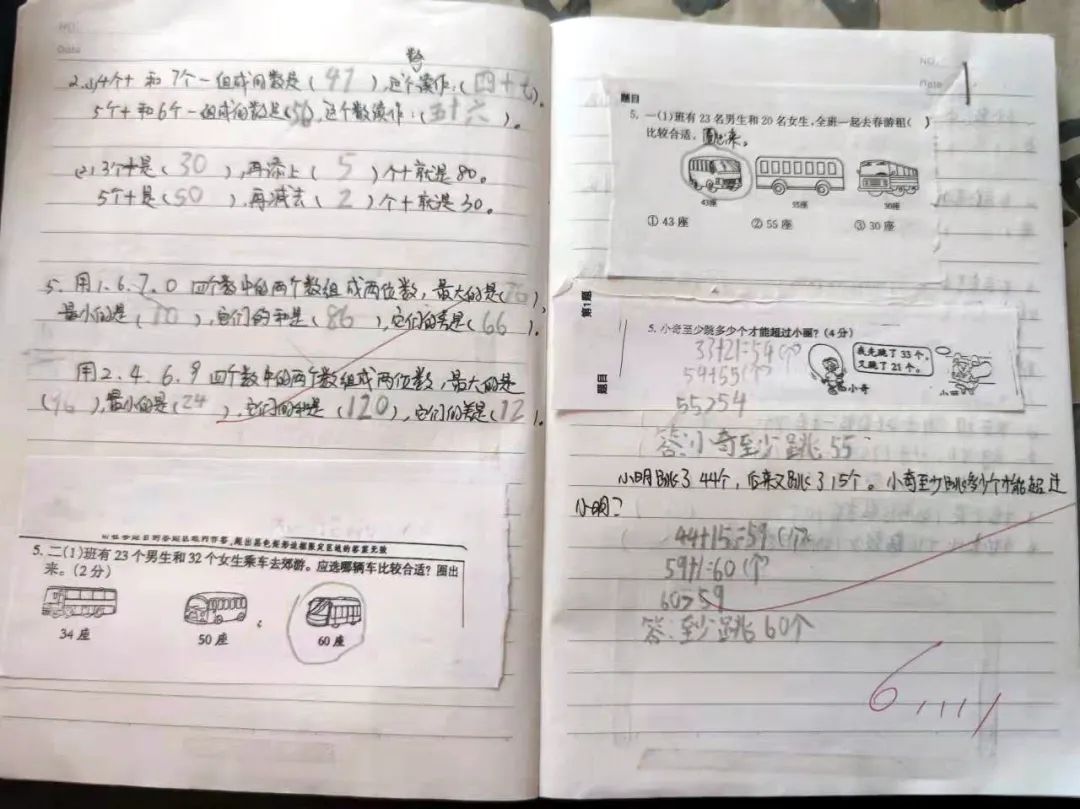 NO.
Date
2.(1)4个十和7个一组成的数是(47),这个数读作:(四十七)。
5个十和6个一组成的数是(56),这个数读作:(五十六)。
(2)3个十是(30),再添上(5)个十就是80。
5个十是(50),再减去(2)个十就是30。
5. 用1、6、7、0四个数中的两个数组成两位数,最大的是(76),
最小的是(10),它们的和是(86),它们的差是(66)。
用2.4.6.9四个数中的两个数组成两位数,最大的是
(96),最小的是(24),它们的和是(120),它们的差是(72)。
5. 二(1)班有23个男生和32个女生乘车去郊游。应选哪辆车比较合适?圈出
来。(2分)
34座 50座 60座
NO.
Date
题目
5. 一(1)班有23名男生和20名女生,全班一起去春游租( )
比较合适。圈起来。
43座 55座 30座
① 43座 ② 55座 ③ 30座
第1题
题目
5. 小奇至少跳多少个才能超过小丽?(4分)
33+21=54(个)
我先跳了33个,
又跳了21个。
54+55(个)
小奇
小丽
55>54
答:小奇至少跳55
小明跳了44个,后来又跳了15个。小奇至少跳多少个才能超过
小明?
44+15=59(个)
59+1=60(个)
60>59
答:至少跳60个
6.11